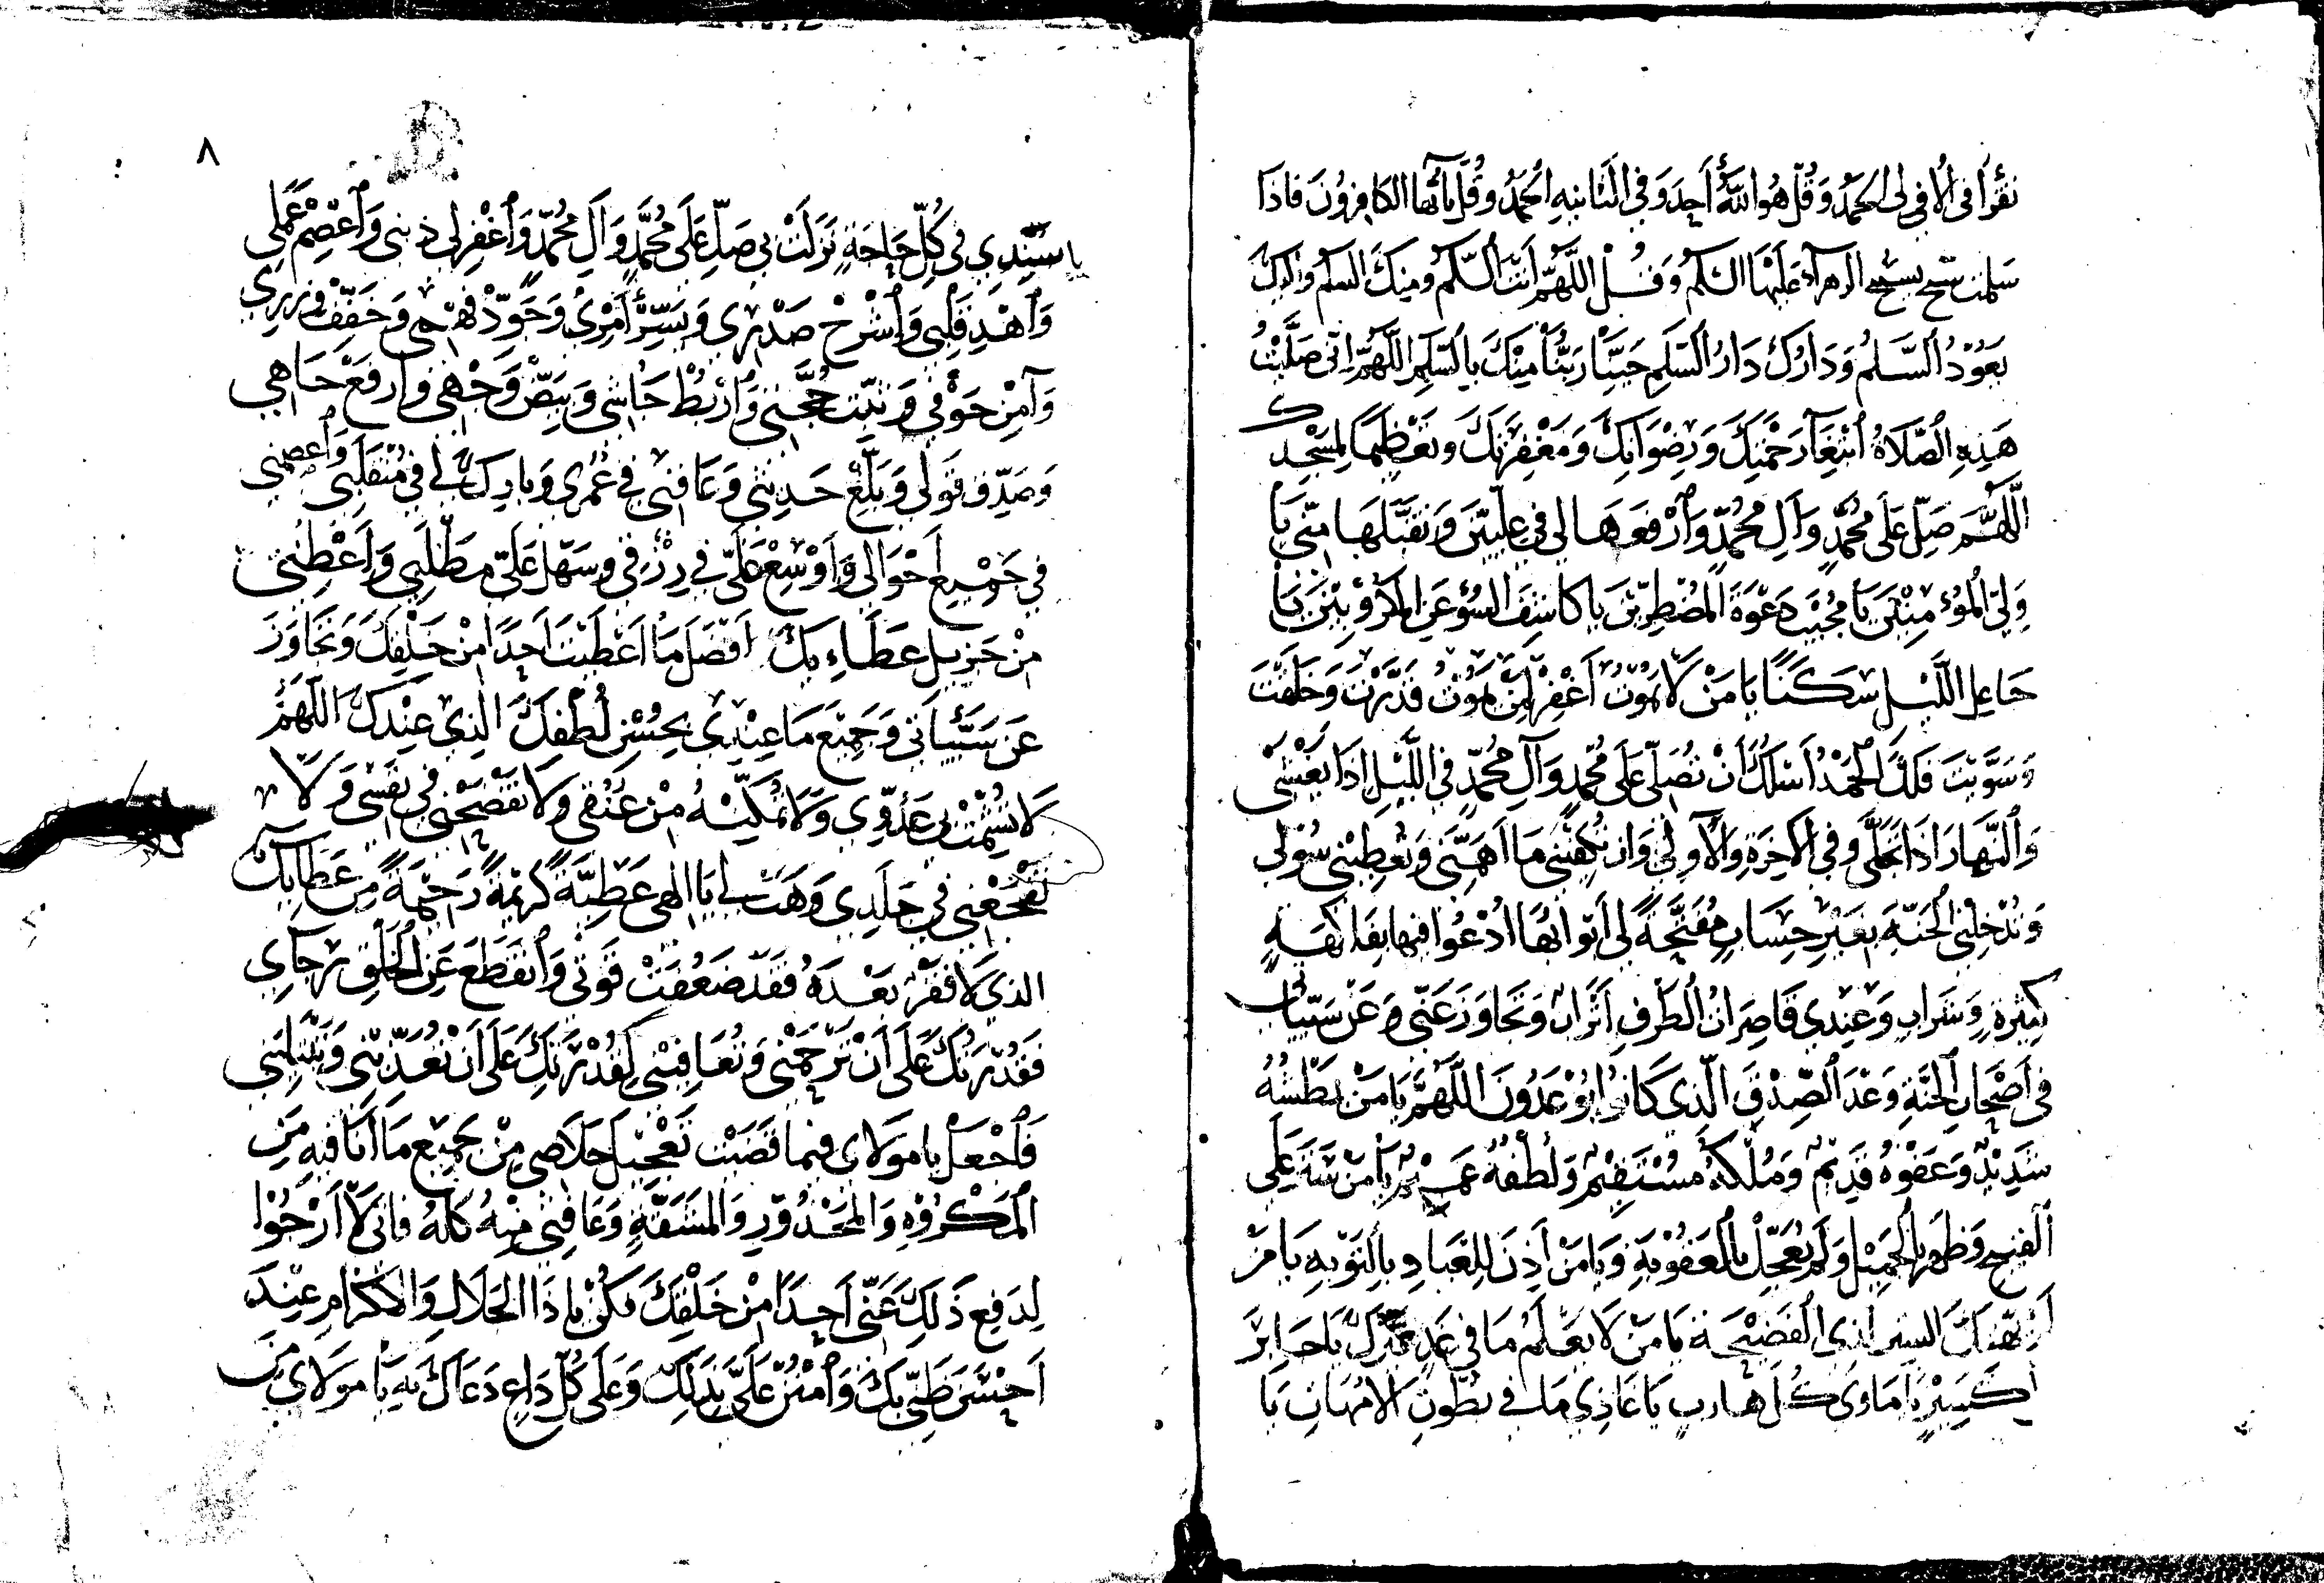 تقرأ فى الاولى الحمدُ وَقُل هُوَ اللّهُ أَحد وَفي الثانيهِ الحَمدُ وقُل يا أيّها الكافِرُونَ فاذَا
سَلمت سبّح تسبيح الزهرآء عَليَها السّلم وَقُلْ اللّهُمّ أنتَ السّلم ومِنكَ السلم واليكَ
يَعُودُ السَّلمُ وَدَارُكَ دَارُ السّلمِ حَيِّنا رَبّنا مِنكَ بِالسّلمِ اللّهُمّ اِنّى صَلّيْتُ
هَذِهِ الصّلَاةُ ابتغَآءَ رَحْمَتِكَ وَرِضْوَانِكَ وَمَغْفِرَتِكَ وتعْظِيمًا لمسْجدِك
اللّهُمَّ صَلّ عَلَى مُحمّدٍ وَآلِ مُحمّدٍ وَارْفَعهَا لي في علِيّينَ وَتقبّلها منّي يَا
وَلِيّ المُؤْمِنِيْنَ يَا مُجيْبَ دَعْوَةَ المُضْطِرّيْنَ يا كاشِفَ السُؤعَنِ المكرُوبِيْنَ يَا
جَاعِل اللّيْلِ سَكَنًا يَا مَنْ لَا يَمُوْتُ أغْفِرْ لِمَنْ يَمُوْتُ قَدّرْتَ وَخَلَقْتَ
وَسَوَّيْتَ فَلَكَ الْحَمْدُ أَسْلُكَ أَنْ تُصَلّي عَلَى مُحمّدٍ وَآلِ مُحمّدٍ فى اللّيْلِ إذَا يَغْشَى
وَالنّهارَ اذا تجَلّى وَفي الآخِرَةِ وَالأُولَى وَان تكْفيَني مَا أَهَمّني وَتُعْطِيْنى سُؤْلي
وَتُدْخِلنى الجَنّةِ بغَيْرِ حِسَابٍ مُفَتّحَةً لي أبْوابُها ادْعُوا فيها بفَاكِهَةٍ
كثيْرَةٍ وَشَرَابٍ وَعِنْدي قَاصِرَاتُ الطّرْفِ أتْرَابٌ وَتَجَاوَزْ عَنّي وَعَنْ سَيّئاتي
في أَصْحَابِ الجَنَّةِ وَعْدَ الصّدْقِ الّذي كَانُوا يُوْعَدُونَ اللّهُمّ يَا مَنْ بَطْشهُ
شَدِيْدٌ وَعَفْوُهُ قَدِيمٌ وَمُلْكُهُ مُسْتَقِيْمٌ وَلُطْفُهُ عَمِيْمٌ يَا مَنْ سَتَرَ عَلَى
الْقَبِيْحِ وَظَهَرَ بالجَمِيْلِ وَلَم يُعَجّلْ بالْعَقُوْبَةِ وَيَا مَنْ أَذِنَ لِلْعِبَادِ بِالتّوْبَةِ يَا مَنْ
لم يَهْتِكَ السِترلِذى الْفَضِيْحَةِ يَا مَنْ لَا يَعْلَمُ مَا في غَدٍ غَيْرُكَ يَا جَابِرَ
كَسِيْرٍ يَا مَاوَى كُل هَارِبٍ يَا غَاذِي مَا في بُطُونِ الامّهَاتِ يَا
يا سَيّدِي فِي كُلّ حَاجَةٍ نَزَلَتْ بي صَلّ عَلَى مُحَمَّدٍ وَآلِ مُحَمّدٍ وَاغْفِرلي ذنبى وَاعْصِمْ عَمَلى
وَاهْدِ قَلْبي وَاشْرَحْ صَدْرِى وَيَسّرْ أَمْرِيْ وَجَوّدْ فهْمي وَخَفِّفْ وزْرِي
وَآمِنْ خَوْفي وَثَبّت حُجَّتي وَارْبُطْ جَاشي وَبيّضْ وَجْهي وارفَعْ جَاهي
وَصَدّق قولى وَبَلّغ حَديثي وَعَافني فِي عُمْري وَبارِك لي في مُنْقَلَبي وَاعصِمني
في جَمْيعِ أَحْوَالي وَأَوْسِعْ عَليّ في رِزْقي وسَهّل عَليّ مطْلَبي وَأَعْطِني
مِنْ جَزيلِ عَطَاءِيكَ أَفْضَلَ مَا أَعْطَيْتَ أَحَدًا مِنْ خَلْقِكَ وَتَجَاوَزَ
عَن سَيّئاتي وَجَمِيْعَ مَا عِنْدِي بِحُسْنِ لُطْفِكَ الّذِي عِنْدَكَ اللّهُمَّ
لَا تُشْمِتْ بي عَدُوّي وَلَا تُمَكّنهُ مِنْ عُنُقِي وَلَا تَفْضَحْنى في نَفْسِي وَلَا
تفْجَعْنِي في جَلَدِي وَهَبْ لي يَا إلهي عَطِيّةً كَرِيْمَةً رَحْمَةً مِن عَطَايكَ
الذي لَا فقْرَ بَعْدَهُ فَقَد ضَعُفَتْ قوّتي وَانقَطَعَ عَنِ الْخَلْقِ رَجَآي
فَقُدْرَتكَ عَلَى أَنْ تَرْحَمْنى وَتُعَافِيْنى كَقُدْرَتِكَ عَلَى أَنْ تُعَذّبْني وَتَبْتَلِيَني
فَاجْعَلْ يَا مَوْلَاى فيما قَضَيْت تَعْجِيْلَ خَلَاصِي مِنْ جَمِيْعِ مَا أَنَا فيهِ مِنَ
الْمَكْرُوْهِ وَالمَحْذُوْرِ وَالمَشَقّةِ وَعَافِني مِنْهُ كلّهُ فاني لَا أَرْجُوْا
لِدَفعِ ذَلِكَ عَنّي أَحَدًا مِنْ خَلْقِكَ فكُنْ يا ذَا الجَلَالِ وَالاكْرَامِ عِنْدَ
أَحْسَنَ ظَنّي بِكَ وَامْنُنْ عَلَيَّ بِذَلِكَ وَعَلَى كُلّ دَاعٍ دَعَاكَ بِهِ يَا مَوْلَاي مِنَ
٨